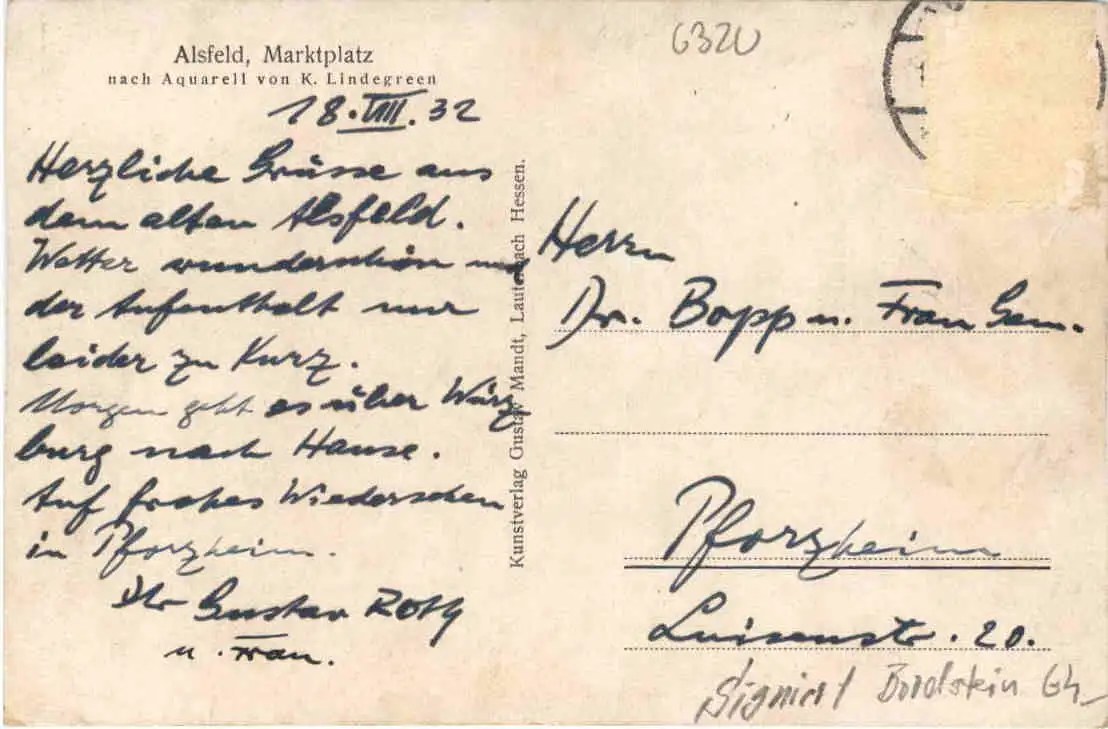 Alsfeld, Marktplatz
nach Aquarell von K. Lindegreen
18. VIII. 32
Herzliche Grüsse aus
dem alten Alsfeld.
Wetter wunderschön und
der Aufenthalt nur
leider zu Kurz.
Morgen geht es über Würz
burg nach Hause.
Auf frohes Wiedersehen
in Pforzheim.
Ihr Gustav Roth
u. Frau.
Kunstverlag Gustav Mandt, Lauterbach Hessen.
6320
Herrn
Dr. Bopp u. Frau Gem.
Pforzheim
Luisenstr. 20.
Signiert